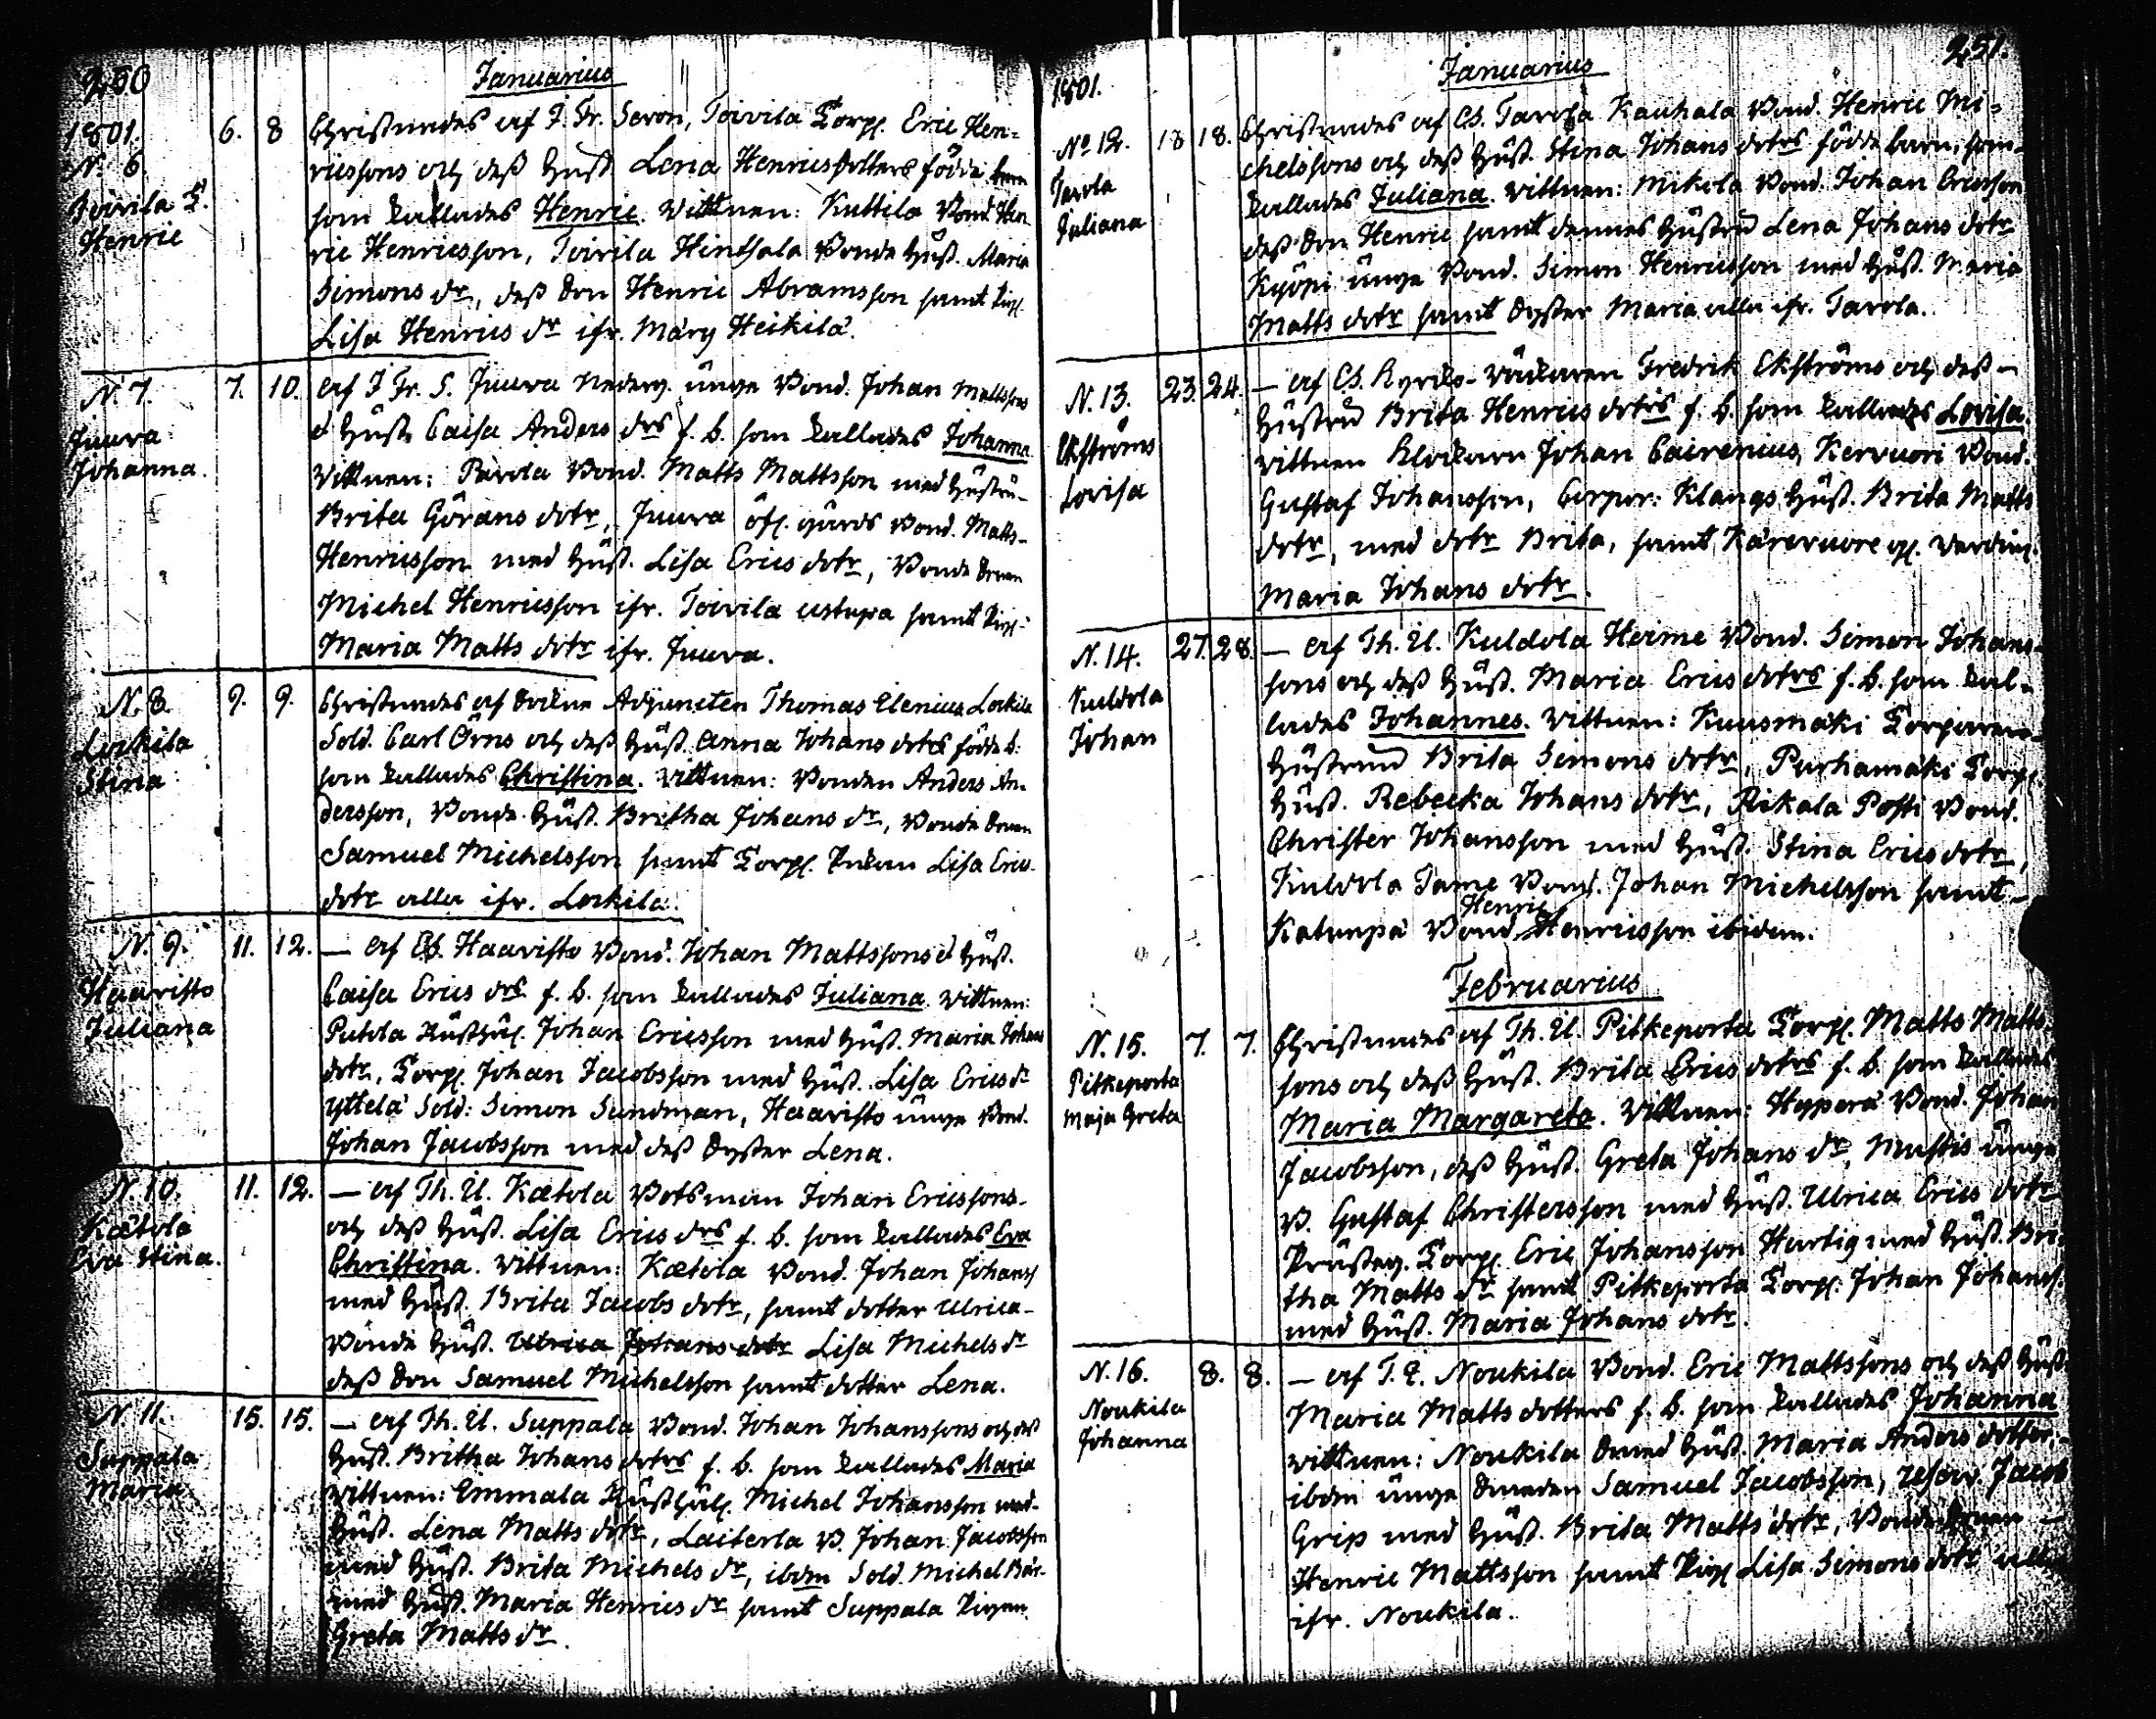 250
Januarius
1801.
N. 6.
Toivila T.
Henric
6. 8
Christnades af J. Fr. Seron, Toivila Torp. Eric Hen=
ricssons och dess Hust. Lena Henricsdotters födde barn
som kallades Henric. Vittnen: Kuttila Bond. Hen
ric Henricsson, Toivila Hinthala Bonde Hust. Maria
Simons dr, dess Son Henric Abramsson samt Pig.
Lisa Henrics dr ifr. Märy Heikilä.
N. 7.
Juvva
Johanna.
7. 10.
af J Fr. S. Juvva Nederg. unge Bond. Johan Mattssons
d Hust. Caisa Anders drs f. b. som kallades Johanna
Vittnen: Parola Bond. Matts Mattsson med Hustru
Brita Görans dotr, Juvva öf. gårds Bond. Matts
Henricsson med Hust. Lisa Erics dotr, Bonde Sonen
Michel Henricsson ifr. Toivila ustupa samt Pig.
Maria Matts dotr ifr. Juvva.
N. 8.
Lockila
Stina
9. 9.
Christnades af Adjuncten Thomas Elenius Lockila
Sold. Carl Örns och dess Hust. Anna Johans dotrs födde b.
som kallades Christina. Vittnen: Bonden Anders An=
dersson, Bonde Hust. Britha Johans dr, Bonde Sonen
Samuel Michelsson samt Torp. Enkan Lisa Erics
dotr alla ifr. Lockila.
N. 9.
Haaristo
Juliana
11. 12.
— af Cs. Haaristo Bond. Johan Mattssons d Hust.
Caisa Erics drs f. b. som kallades Juliana. Vittnen:
Putola Rusthål. Johan Ericsson med Hust. Maria Johans
dotr, Torp. Johan Jacobsson med Hust. Lisa Erics dr
Yttelä Sold: Simon Sundman, Haaristo unge Bond.
Johan Jacobsson med dess Syster Lena.
N. 10.
Kætola
Eva Stina.
11. 12.
— af Th. El. Kætola Botsman Johan Ericssons
och dess Hust. Lisa Erics drs f. b. som kallades Eva
Christina. Vittnen: Kætola Bond. Johan Johans
med Hust. Brita Jacobs dotr, samt dotter Ulrica
Bonde Hust. Ulrica Johans dotr Lisa Michels dr
dess Son Samuel Michelsson samt dotter Lena.
N. 11.
Suppala
Maria
15. 15.
— af Th. El. Suppala Bond. Johan Johanssons och dess
Hust. Britha Johans dotrs f. b. som kallades Maria
Vittnen: Emmala Rusthål. Michel Johansson med
Hust. Lena Matts dotr, Laiterla B. Johan Jacobsson
med Hust. Brita Michels dr, ibdm Sold. Michel Bär
med Hust. Maria Henrics dr samt Suppala Pigan
Greta Matts dr.
251.
Januarius
1801.
No 12.
Tarola
Juliana
18 18.
Christnades af Cs. Tarola Kauhala Bond. Henric Mi=
chelssons och dess Hust. Stina Johans dotrs födde barn, som
kallades Juliana. Vittnen: Mikola Bond. Johan Ericsson
dess Son Henric samt dennes Hustru Lena Johans dotr
Kyöpi unge Bond. Simon Henricsson med Hust. Maria
Matts dotr samt Syster Maria alla ifr. Tarola.
N. 13.
Ekströms
Lovisa
23. 24.
— af Cs. Kyrko-Väktaren Fredrik Ekströms och dess
Hustru Brita Henrics dotrs f. b. som kallades Lovisa.
Vittnen Klockaren Johan Cairenius, Kervuori Bond.
Gustaf Johansson, Corpor: Klangs Hust. Brita Matts
dotr, med dotr Brita, samt Kärrvuore
Maria Johans dotr.
N. 14.
Kuldola
Johan
27. 28.
— af Th. El. Kuldola Heime Bond. Simon Johans-
sons och dess Hust. Maria Erics dotrs f. b. som kal=
lades Johannes. Vittnen: Kuusmäki Torparens
Hustru Brita Simons dotr, Purhamäki Torp.
Hust. Rebecka Johans dotr, Rikala Posti Bond.
Christer Johansson med Hust. Stina Erics dotr,
Kuldola Tame Bond. Johan Michelsson samt
Katunpä Bond. Henric Henricsson ibidem.
Februarius
N. 15.
Pitkeporta
Maja Greta
7. 7.
Christnades af Th. El. Pitkeporta Torp. Matts Matts
sons och dess Hust. Brita Erics dotrs f. b. som kallades
Maria Margareta. Vittnen: Hyperä Bond. Johan
Jacobsson, dess Hust. Greta Johans dr, Mustis unge
B. Gustaf Christersson med Hust. Ulrica Erics dotr
Torp. Eric Johansson Hartig med Hust. Bri-
tha Matts dr samt Pitkeporta Torp. Johan Johans.
med Hust. Maria Johans dotr.
N. 16.
Noukila
Johanna
8. 8.
— af T. E. Noukila Bond. Eric Mattssons och dess Hust.
Maria Matts dotters f. b. som kallades Johanna
Vittnen: Noukila Smed Hust. Maria Anders dotter,
ibdm unge Smeden Samuel Jacobsson, reserv. Jacob
Grip med Hust. Brita Matts dotr, Bonde Sonen
Henric Mattsson samt Pig Lisa Simons dotr alla
ifr. Noukila.